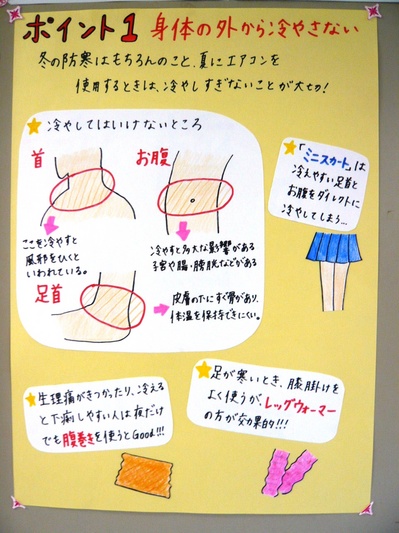 ポイント1 身体の外から冷やさない
冬の防寒はもちろんのこと、夏にエアコンを
使用するときは、冷やしすぎないことが大切!
冷やしてはいけないところ
首
お腹
ここを冷やすと
風邪をひくと
いわれている。
冷やすと多大な影響がある
子宮や腸・膀胱などがある
足首
皮膚の下にすぐ骨があり、
体温を保持できにくい。
「ミニスカート」は
冷えやすい足首と
お腹をダイレクトに
冷やしてしまう…
生理痛がきつかったり、冷える
と下痢しやすい人は夜だけ
でも腹巻きを使うとGood!!!
足が寒いとき、膝掛けを
よく使うが、レッグウォーマー
の方が効果的!!!